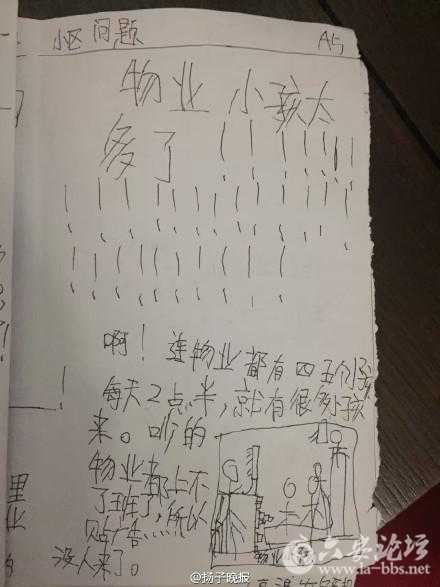 小区问题 A5
物业小孩太
多了！！！！！！！
！！！！！！！！！！！！
！！！！！！！！！！
啊！连物业都有四五个小孩
！每天2点半，就有很多小孩
来。吵的
物业都上不
了班了，所以
贴广告……
没人来了。
里
业
物业
@扬子晚报
六安论坛
www.la-bbs.net